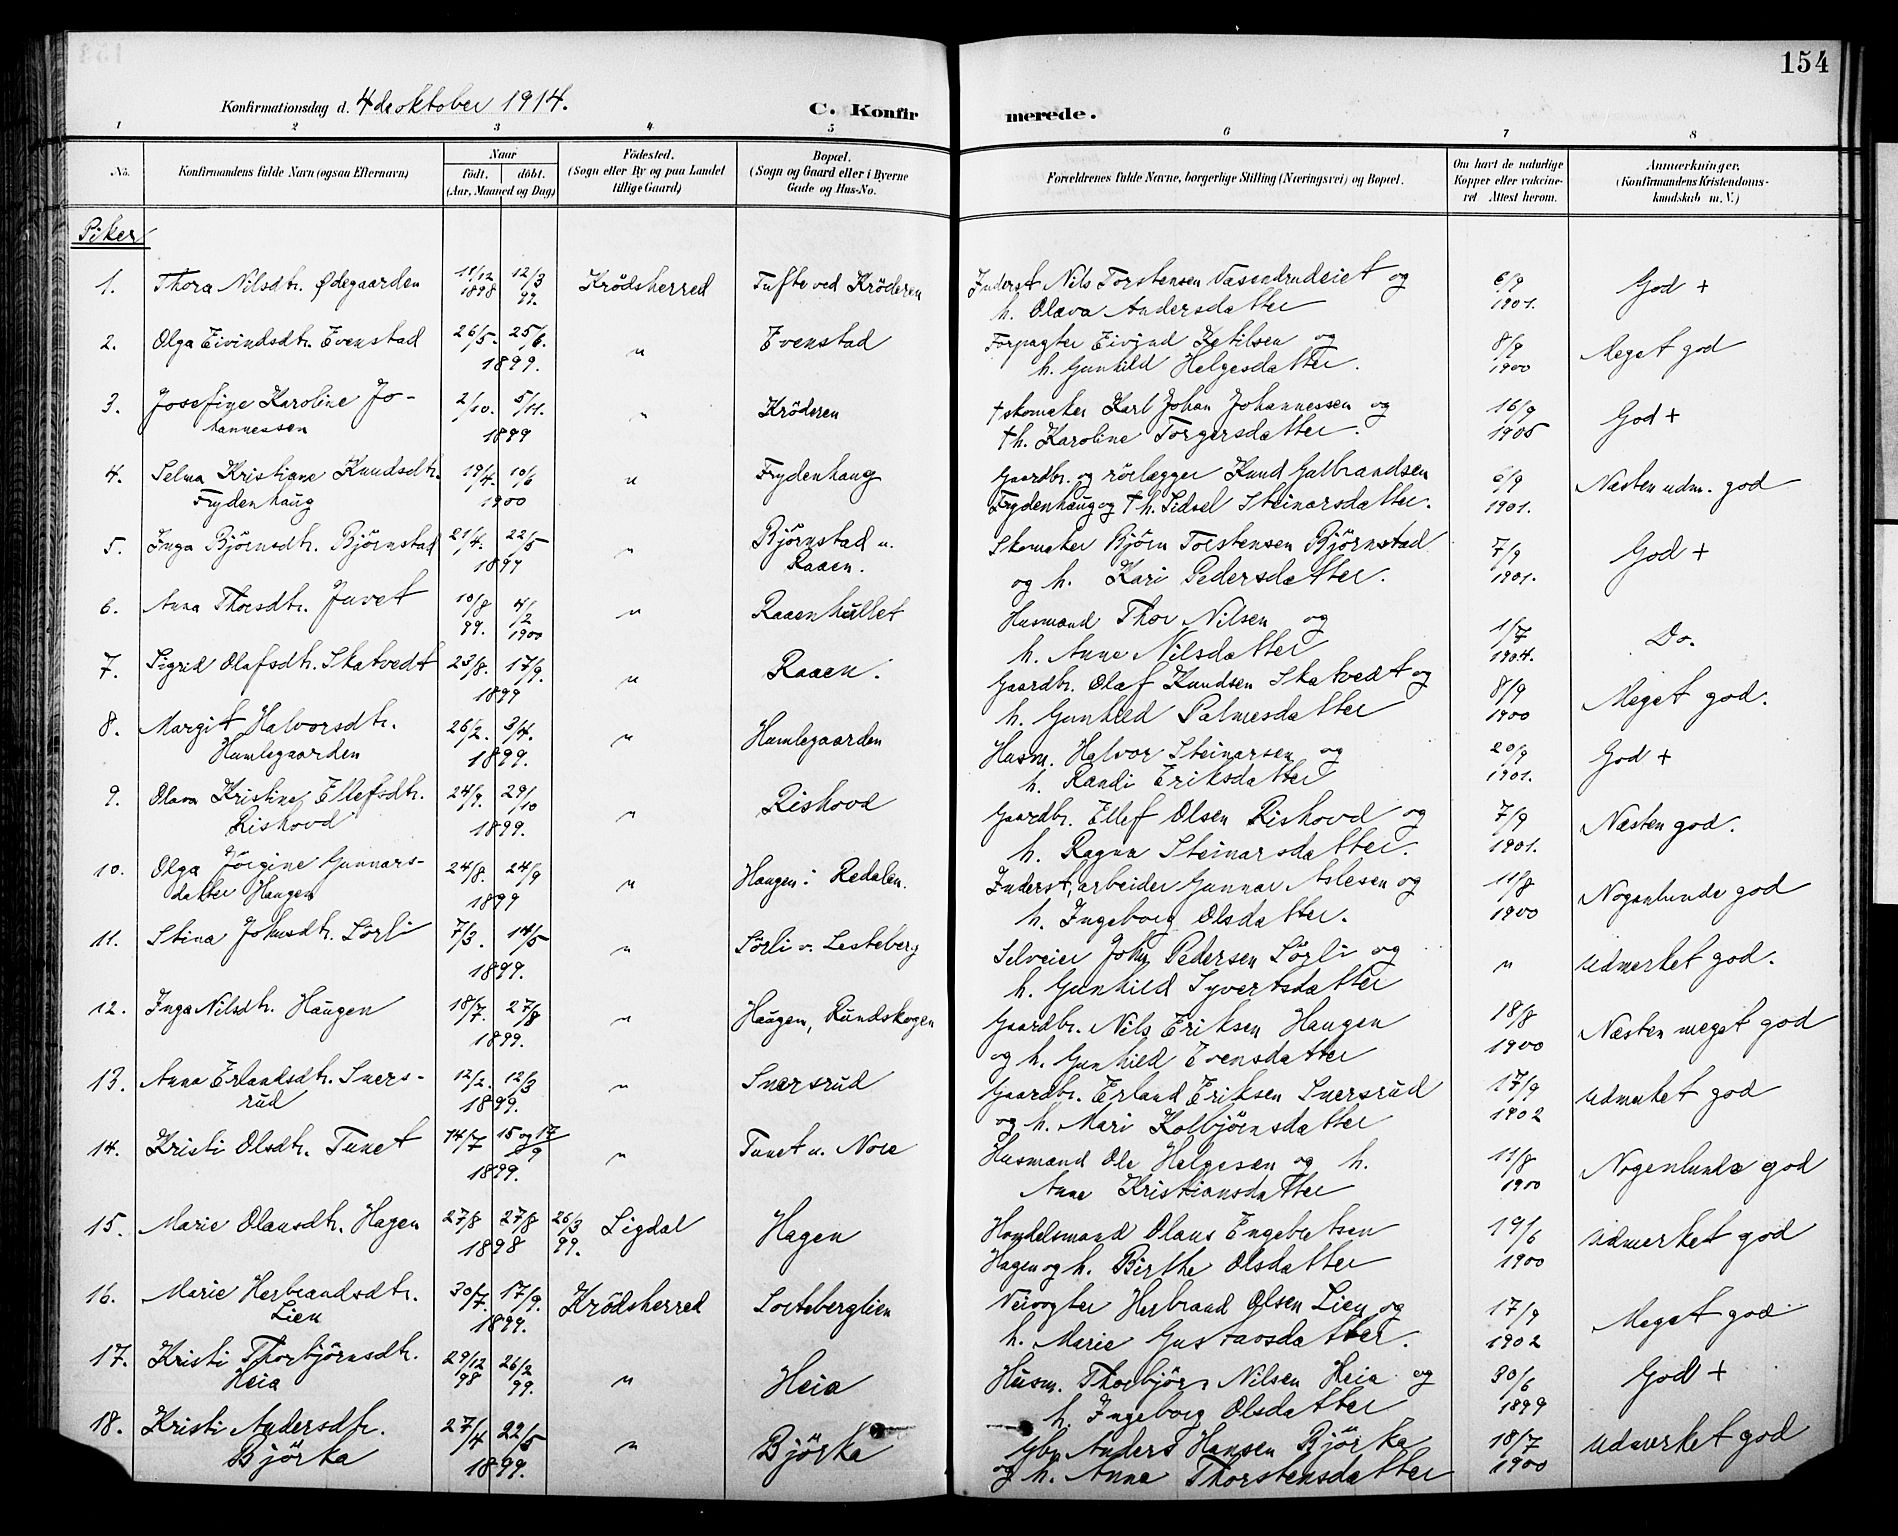 154
Konfirmationsdag d. 4de oktober 1914.
C. Konfirmerede.
1 2 3 4 5 6 7 8
No.
Konfirmandens fulde Navn (ogsaa Efternavn)
Naar
födt. döbt.
(Aar, Maaned og Dag)
Födested.
(Sogn eller By og paa Landet
tillige Gaard)
Bopæl.
(Sogn og Gaard eller i Byerne
Gade og Hus-No.
Forældrenes fulde Navne, borgerlige Stilling (Næringsvei) og Bopæl.
Om havt de naturlige
Kopper eller vakcine-
ret Attest herom.
Anmærkninger.
(Konfirmandens Kristendoms-
kundskab m. V.)
Piker
1. Thora Nilsdtr. Ødegaarden 11/12 1898 12/3 99. Krödsherred Tufte ved Kröderen Inderst Nils Torstensen Vassendrudeiet og 6/9 1901. God +
h. Olava Andersdatter
2. Olga Eivindsdtr. Evenstad 26/5. 25/6. 1899. " Evenstad Forpagter Eivind Ketilsen og 8/9 1900 Meget god
h. Gunhild Helgesdatter.
3. Josefine Karoline Jo- 2/10. 5/11. 1899 " Kröderen † skomaker Karl Johan Johannessen og 16/9 1905 God +
hannessen † h. Karoline Torgersdatter.
4. Selma Kristiane Knudsdtr. 19/4. 10/6 1900 " Frydenhaug Gaardbr. og rörlægger Knud Gulbrandsen 6/9 1901. Næsten udm. god
Frydenhaug Frydenhaug og † h. Sidsel Steinarsdatter.
5. Inga Björnsdtr. Björnstad 21/4. 22/5 1899 " Björnstad u. Skomaker Björn Torstensen Björnstad 7/9 1901. God +
Raaen. og h. Kari Pedersdatter.
6. Anna Thorsdtr. Juvet 10/8 99. 4/2 1900 " Raaenhullet Husmand Thor Nilsen og 1/7 1904. Do.
h. Anne Nilsdatter
7. Sigrid Olafsdtr. Skatvedt 23/8. 17/9. 1899 " Raaen. Gaardbr. Olaf Knudsen Skatvedt og 8/9 1900 Meget god.
h. Gunhild Palmesdatter
8. Margit Halvorsdtr. 26/2. 3/4. 1899. " Humlegaarden Husm. Halvor Steinarsen og 20/9 1901. God +
Humlegaarden h. Randi Eriksdatter
9. Olava Kristine Ellefsdtr. 24/9. 29/10 1899. " Rishovd Gaardbr. Ellef Olsen Rishovd og 7/9 1901. Næsten god.
Rishovd h. Ragna Steinarsdatter.
10. Olga Jörgine Gunnars- 24/8. 24/9 1899 " Haugen i Redalen. Inderst, arbeider Gunnar Aslesen og 11/8 1900 Nogenlunde god
datter Haugen h. Ingeborg Olsdatter.
11. Stina Johnsdtr. Sörli 7/3. 14/5 1899. " Sörli v. Lesteberg Selveier John Pedersen Sörli og " udmerket god.
h. Gunhild Syvertsdatter
12. Inga Nilsdtr. Haugen 18/7. 27/8 1899. " Haugen, Rundskogen Gaardbr. Nils Eriksen Haugen 18/8 1900 Næsten meget god
og h. Gunhild Evensdatter
13. Anna Erlandsdtr. Sners- 12/2. 12/3 1899. " Snersrud Gaardbr. Erland Eriksen Snersrud 17/9 1902 udmerket god
rud og h. Mari Kolbjörnsdatter
14. Kristi Olsdtr. Tunet 14/7 15 og 17/9 1899. " Tunet u. Nore Husmand Ole Helgesen og h. 11/8 1900 Nogenlunde god
Anne Kristiansdatter
15. Marie Olausdtr. Hagen 27/8 27/8 1898 26/3 99. Sigdal Hagen Handelsmand Olaus Engebretsen 19/6 1900 udmerket god
Hagen og h. Birthe Olsdatter
16. Marie Herbrandsdtr. 30/7. 17/9. 1899. Krödsherred Lesteberglien Veivogter Herbrand Olsen Lien og 17/9 1902 Meget god
Lien h. Marie Gustavsdatter.
17. Kristi Thorbjörnsdtr. 29/12 98 26/2 99. " Heia Husm. Thorbjörn Nilsen Heia og 30/6 1899 God +
Heia h. Ingeborg Olsdatter
18. Kristi Andersdtr. 27/4 22/5 1899. " Björka Gbr. Anders Hansen Björka 18/7 1900 udmerket god
Björka og h. Anne Thorstensdatter